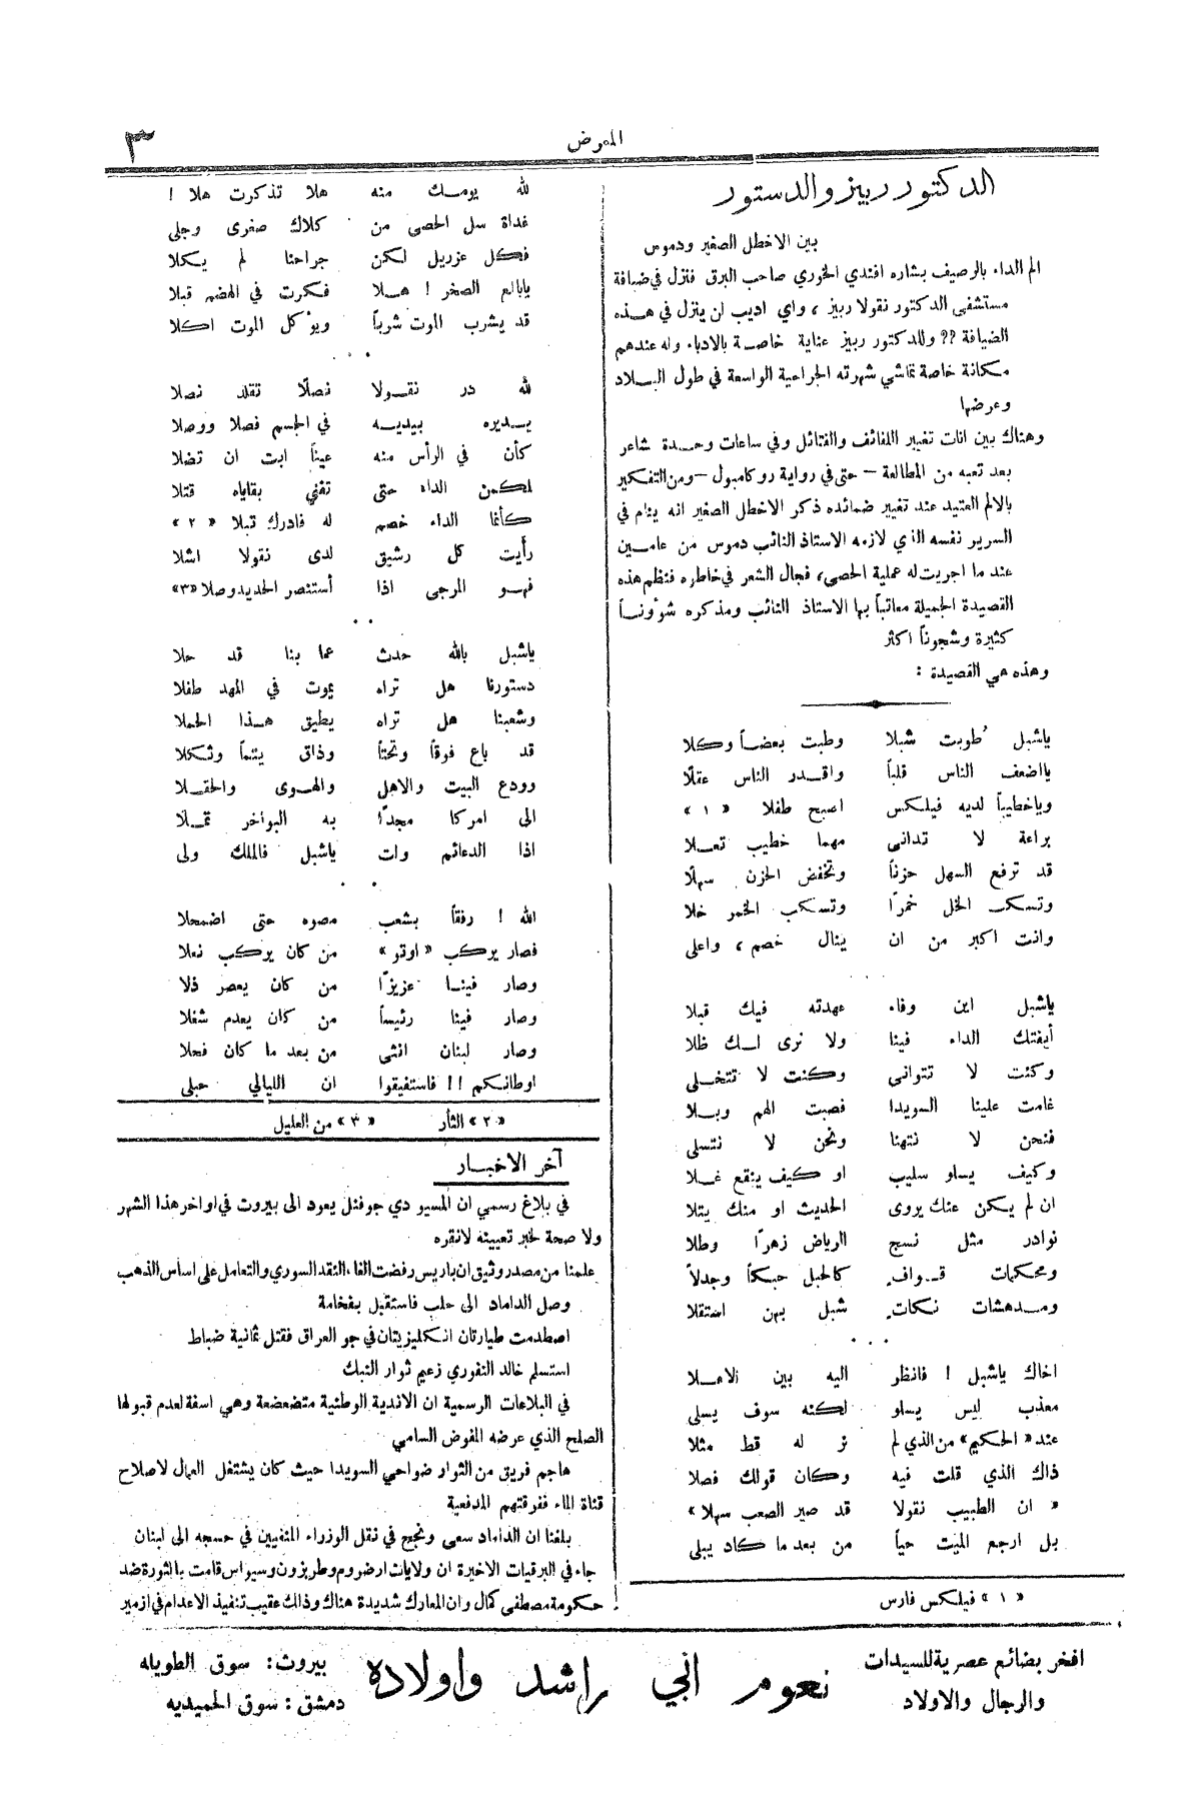 ٣
المعرض
الدكتور ربيز والدستور
بين الاخطل الصغير ودموس
الم الداء بالرصيف بشاره افندي الخوري صاحب البرق فنزل في ضيافة
مستشفى الدكتور نقولا ربيز ، واي اديب ان ينزل في هذه
الضيافة ؟؟ وللدكتور ربيز عناية خاصة بالادباء وله عندهم
مكانة خاصة تماشي شهرته الجراحية الواسعة في طول البلاد
وعرضها
وهناك بين انات تغيير اللفائف والفتائل وفي ساعات وحدة شاعر
بعد تعبه من المطالعة – حتى في رواية روكامبول – ومن التفكير
بالالم العتيد عند تغيير ضمائده ذكر الاخطل الصغير انه ينام في
السرير نفسه الذي لازمه الاستاذ النائب دموس من عامين
عند ما اجريت له عملية الحصى، فجال الشعر في خاطره فنظم هذه
القصيدة الجميلة معاتباً بها الاستاذ النائب ومذكره شؤوناً
كثيرة وشجوناً اكثر
وهذه هي القصيدة :
ياشبل طوبت شبلا وطبت بعضاً وكلا
يااضعف الناس قلباً واقدر الناس عقلًا
وياخطيباً لديه فيلكس اصبح طفلا « ١ »
براعة لا تدانى مهما خطيب تعلا
قد ترفع السهل حزناً وتخفض الحزن سهلًا
وتسكب الخل خمرًا وتسكب الخمر خلا
وانت اكبر من ان ينال خصم ، واعلى
ياشبل اين وفاء عهدته فيك قبلا
أيفتك الداء فينا ولا نرى لك ظلا
وكنت لا تتوانى وكنت لا تتخلى
غامت علينا السويدا فصبت الهم وبلا
فنحن لا نتهنا ونحن لا نتسلى
وكيف يسلو سليب او كيف ينقع غلا
ان لم يكن عنك يروى الحديث او منك يتلا
نوادر مثل نسج الرياض زهرًا وطلا
ومحكمات قواف كالحبل حبكاً وجدلاً
ومدهشات نكات شبل بهن استقلا
اخاك ياشبل ! فانظر اليه بين الاعلا
معذب ليس يسلو لكنه سوف يسلى
عند « الحكيم » من الذي لم نر له قط مثلا
ذاك الذي قلت فيه وكان قولك فصلا
« ان الطبيب نقولا قد صير الصعب سهلا »
بل ارجع الميت حياً من بعد ما كاد يبلى
« ١ » فيلكس فارس
لله يومك منه هلا تذكرت هلا !
غداة سل الحصى من كلاك صغرى وجلى
فكل عزريل لكن جراحنا لم يكلا
يابالع الصخر ! هلا فكرت في الهضم قبلا
قد يشرب الموت شرباً ويؤكل الموت اكلا
لله در نقولا نصلًا تقلد نصلا
يديره بيديه في الجسم فصلا ووصلا
كأن في الرأس منه عيناً ابت ان تضلا
لكمن الداء حتى تفني بقاياه قتلا
كأنما الداء خصم له فادرك تبلا « ٢ »
رأيت كل رشيق لدى نقولا اشلا
فهو المرجى اذا أستنصر الحديد وصلا «٣»
ياشبل بالله حدث عما بنا قد حلا
دستورنا هل تراه يموت في المهد طفلا
وشعبنا هل تراه يطيق هذا الحملا
قد باع فوقاً وتحتاً وذاق يتماً وثكلا
وودع البيت والاهل والهوى والحقلا
الى امركا مجدًا به البواخر تملا
اذا الدعائم وات ياشبل فالملك ولى
الله ! رفقاً بشعب مصوه حتى اضمحلا
فصار يركب « اوتو » من كان يركب نعلا
وصار فينا عزيزًا من كان يعصر ذلا
وصار فينا رئيساً من كان يعدم شغلا
وصار لبنان انثى من بعد ما كان فحلا
اوطانكم !! فاستفيقوا ان الليالي حبلى
« ٢ » الثأر « ٣ » من العليل
آخر الاخبار
في بلاغ رسمي ان المسيو دي جوفنل يعود الى بيروت في اواخر هذا الشهر
ولا صحة لخبر تعيينه لانقره
علمنا من مصدر وثيق ان باريس رفضت الغاء النقد السوري والتعامل على اساس الذهب
وصل الداماد الى حلب فاستقبل بفخامة
اصطدمت طيارتان انكليزيتان في جو العراق فقتل ثمانية ضباط
استسلم خالد النفوري زعيم ثوار النبك
في البلاغات الرسمية ان الاندية الوطنية متضعضعة وهي اسفة لعدم قبولها
الصلح الذي عرضه المفوض السامي
هاجم فريق من الثوار ضواحي السويدا حيث كان يشتغل العمال لاصلاح
قناة الماء ففرقتهم المدفعية
بلغنا ان الداماد سعى ونجح في نقل الوزراء المنفيين في حسجه الى لبنان
جاء في البرقيات الاخيرة ان ولايات ارضروم وطربزون وسيواس قامت بالثورة ضد
حكومة مصطفى كمال وان المعارك شديدة هناك وذلك عقيب تنفيذ الاعدام في ازمير
افخر بضائع عصرية للسيدات
والرجال والاولاد
نعوم ابي راشد واولاده
بيروت : سوق الطويله
دمشق : سوق الحميديه